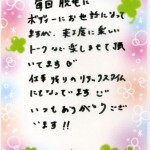 毎回 脱毛に
ボディーにお世話になって
ますが、来る度に楽しい
トークなど楽しませて頂い
てます♡
仕事帰りのリラックスタイム
にもなっています♡
いつもありがとうござ
います!!